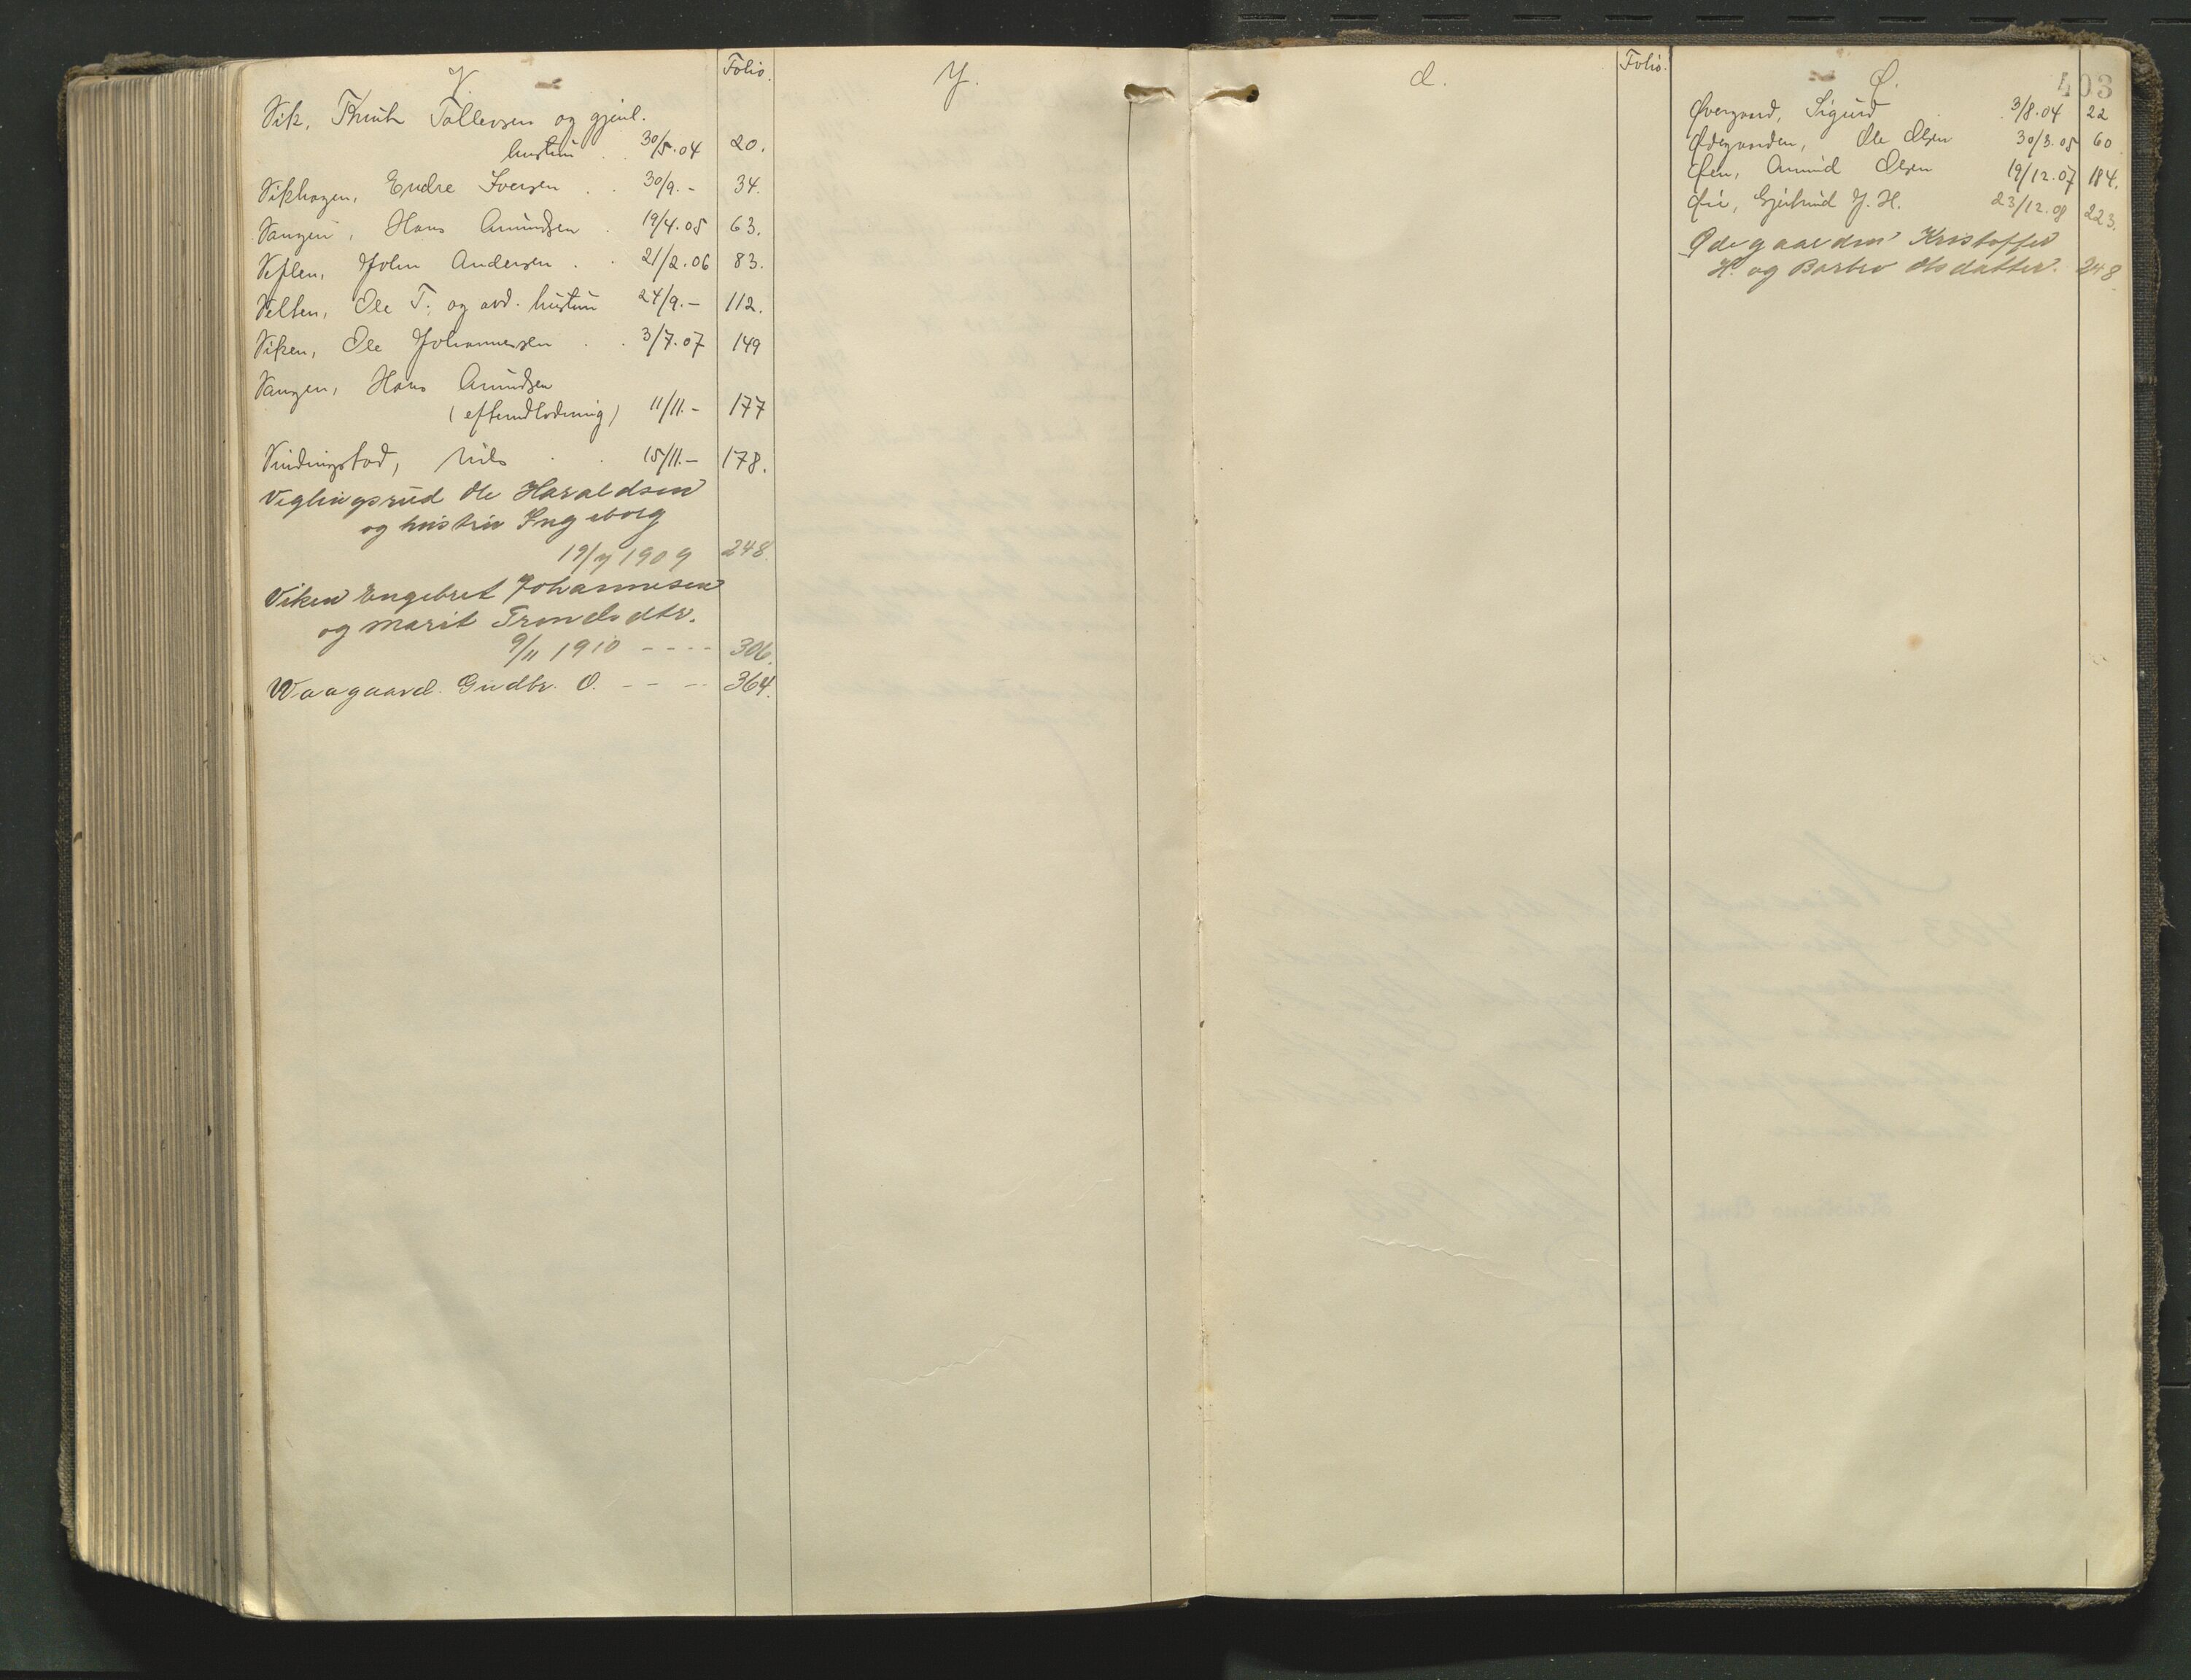 V.
Folio.
Vik, Knut Tollevsen og gjenl.
hustru . . 30/5.04 20.
Vikhagen, Endre Iversen . . 30/9.- 34.
Vangen, Hans Amundsen . 19/4.05 63.
John Andersen . . 21/2.06 83.
Velten, Ole T. og avd. hustru 24/9.- 112.
Viken, Ole Johannessen . . 3/7.07 149
Vangen, Hans Amundsen
(efterudlodning) 11/11.- 177
Vindingstad, Nils . . 15/11.- 178.
Veglingsrud Ole Haraldsen
og hustru Ingeborg
19/7 1909 248.
Viken Engebret Johannesen
og Marit Trondsdtr.
9/11 1910 - - - - 306.
Waagaard. Gudbr. O. - - - - 364.
Y.
Folio.
Ø.
403
Øvergaard, Sigurd . 3/8.04 22
Ødegaarden, Ole Olsen 30/3.05 60
Øen, Amund Olsen 19/12.07 184.
Øie, Gjertrud J. H. 23/12.08 223.
Ødegaarden Kristoffer
H. og Barbro Olsdatter. 248.